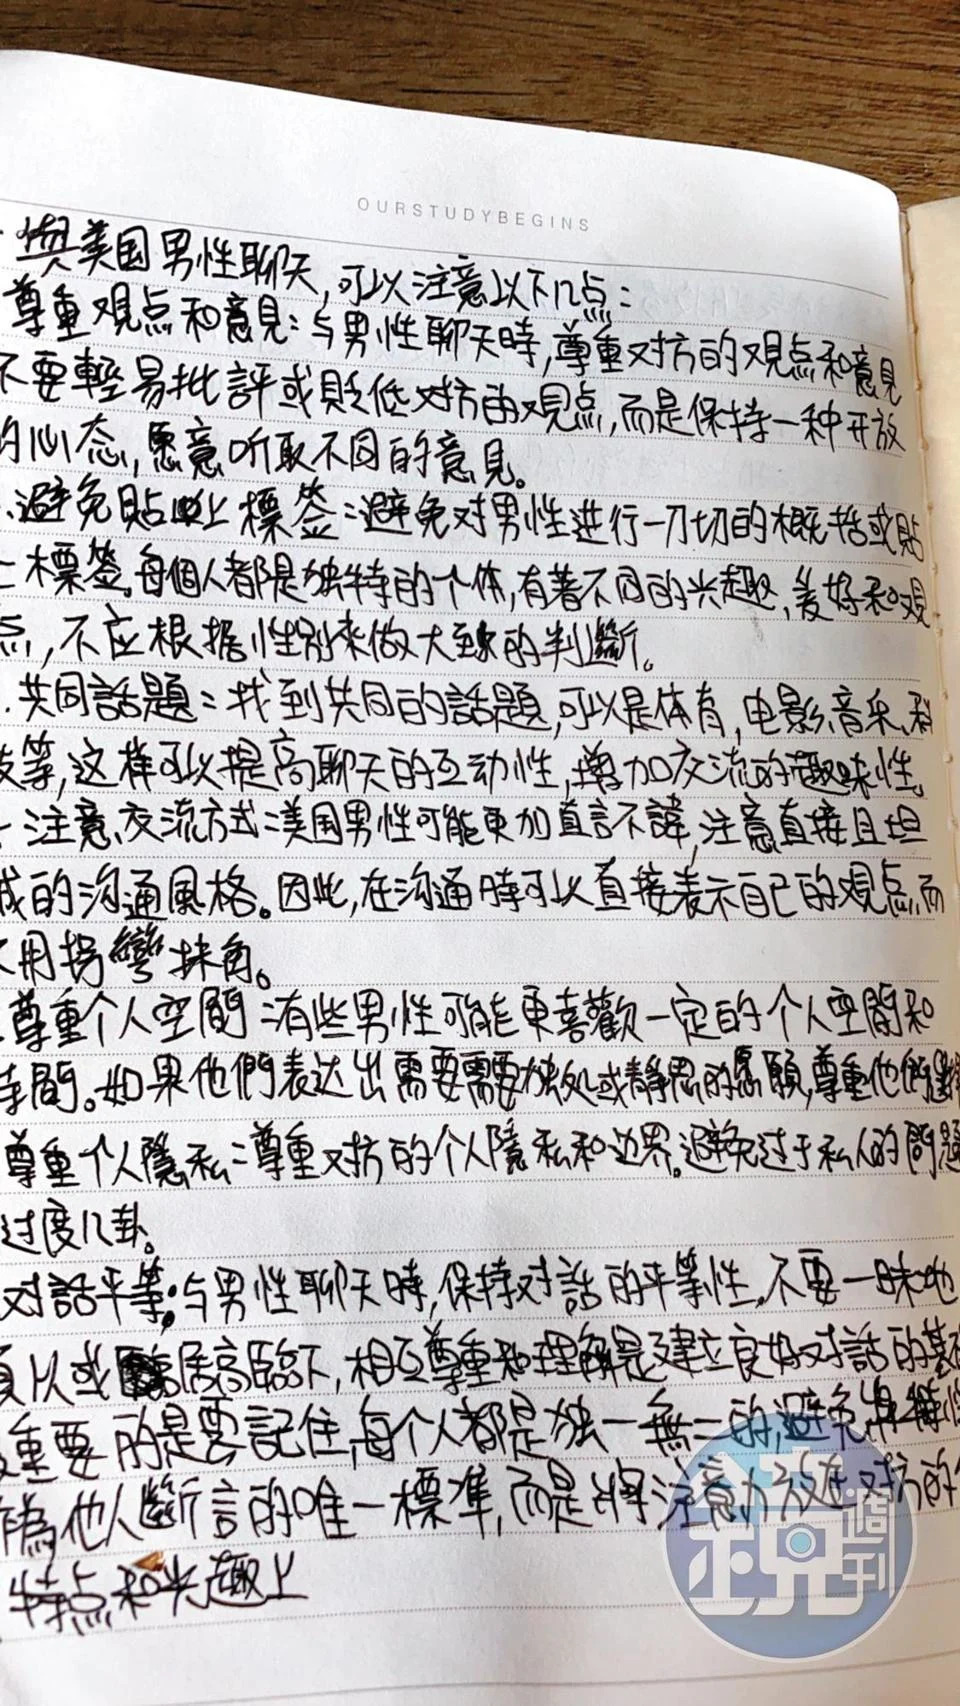 OURSTUDYBEGINS
與美国男性聊天,可以注意以下几点:
尊重观点和意見:与男性聊天時,尊重对方的观点和意見
不要輕易批評或貶低对方的观点,而是保持一种开放
的心态,愿意听取不同的意見。
.避免貼上標签:避免对男性进行一刀切的概括或貼
上標签。每個人都是独特的个体,有著不同的兴趣,爱好和观
点,不应根据性别来做大致的判斷。
.共同話題:找到共同的話題,可以是体育,电影、音乐、科
技等,这样可以提高聊天的互动性,增加交流的趣味性。
注意交流方式:美国男性可能更加直言不諱,注意直接且坦
诚的沟通風格。因此,在沟通時可以直接表示自己的观点,而
不用拐彎抹角。
尊重个人空間:有些男性可能更喜歡一定的个人空間和
時間。如果他們表达出需要需要独处或靜思的愿願,尊重他們
尊重个人隱私:尊重对方的个人隱私和边界。避免过于私人的問題
过度八卦。
对話平等:与男性聊天時,保持对話的平等性,不要一昧地
以或居高臨下,相互尊重和理解是建立良好对話的基础
重要的是要記住,每个人都是独一無二的,避免
作為他人斷言的唯一標準,而是將注意力放在对方的
特点和兴趣上
鏡週刊